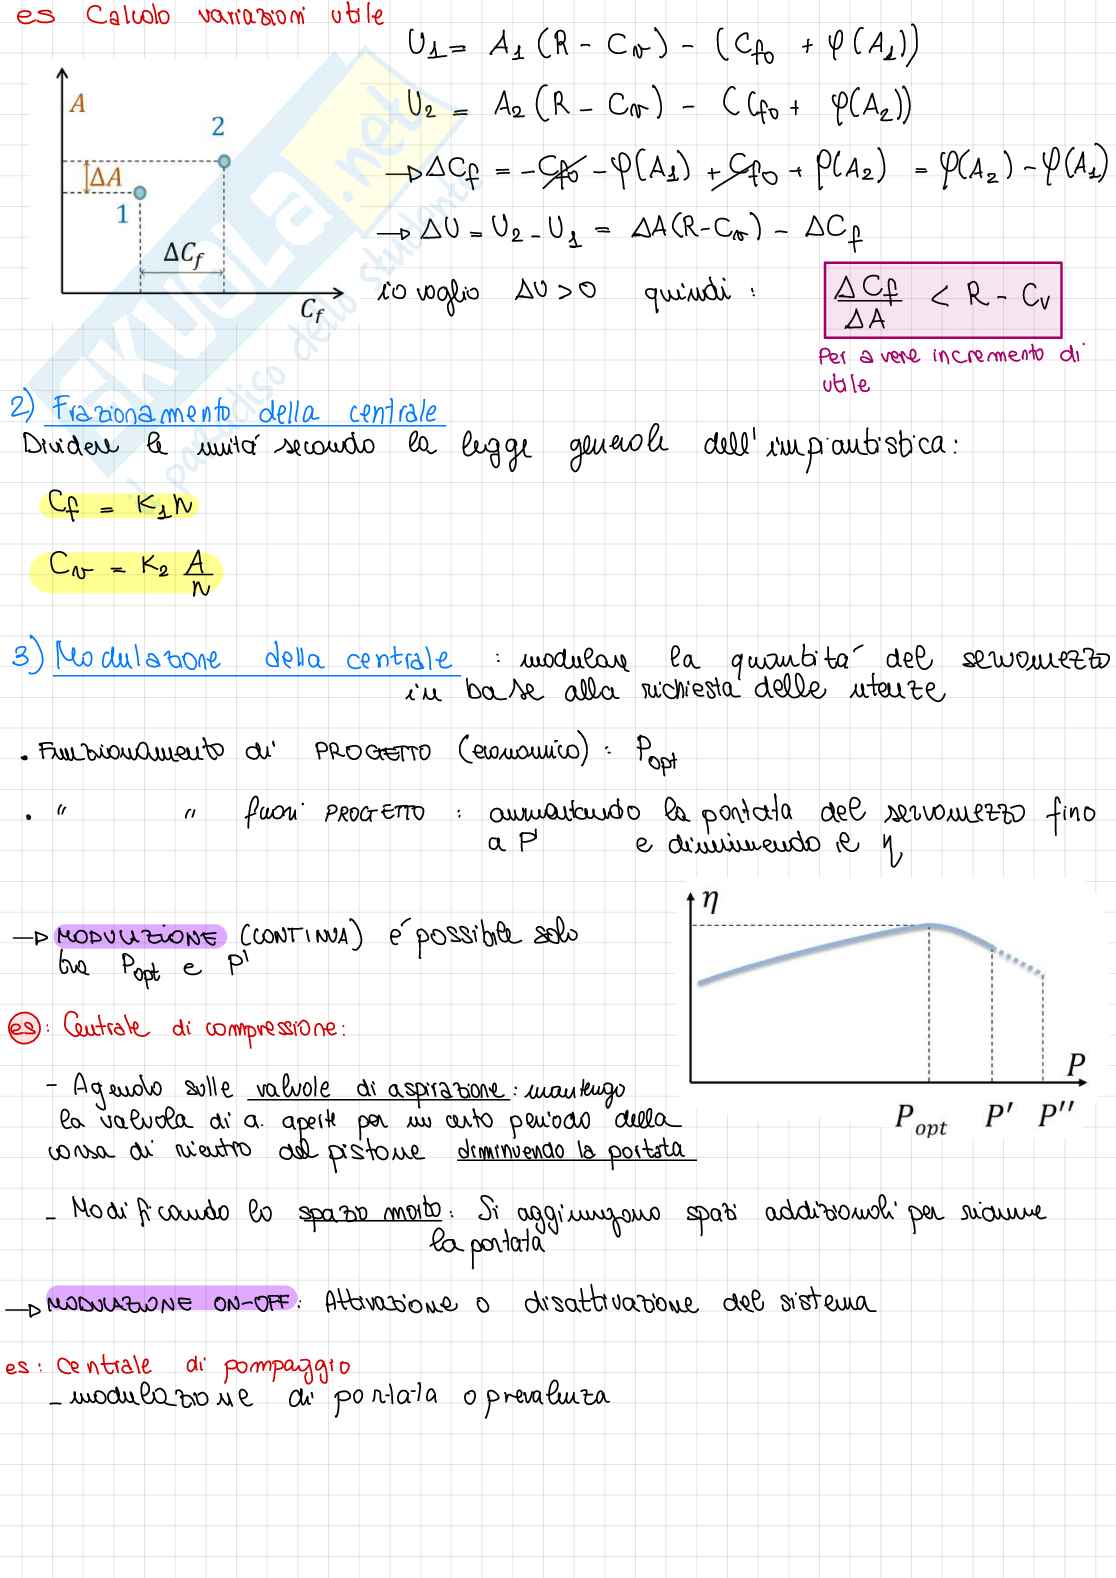 es Calcolo variazioni utile
U₁ = A₁(R - Cᵥ) - (Cf₀ + φ(A₁))
U₂ = A₂(R - Cᵥ) - (Cf₀ + φ(A₂))
→ ΔCf = -Cf₀ - φ(A₁) + Cf₀ + φ(A₂) = φ(A₂) - φ(A₁)
→ ΔU = U₂ - U₁ = ΔA(R - Cᵥ) - ΔCf
io voglio ΔU > 0 quindi : ΔCf/ΔA < R - Cᵥ
Per avere incremento di
utile
A
2
ΔA
1
ΔCf
Cf
SKUOLA.net
il paradiso dello studente
2) Frazionamento della centrale
Dividere le unità secondo la legge generale dell'impiantistica:
Cf = K₁n
Cᵥ = K₂ A/n
3) Modulazione della centrale : modulare la quantità del servomezzo
in base alla richiesta delle utenze
. Funzionamento di PROGETTO (economico) : Popt
. " " fuori PROGETTO : aumentando la portata del servomezzo fino
a P' e diminuendo il η
→ MODULAZIONE (CONTINUA) è possibile solo
tra Popt e P'
η
P
Popt P' P''
es: Centrale di compressione:
- Agendo sulle valvole di aspirazione: mantengo
la valvola di a. aperte per un certo periodo della
corsa di rientro del pistone diminuendo la portata
- Modificando lo spazio morto: Si aggiungono spazi addizionali per ridurre
la portata
→ MODULAZIONE ON-OFF: Attivazione o disattivazione del sistema
es: Centrale di pompaggio
- modulazione di portata o prevalenza